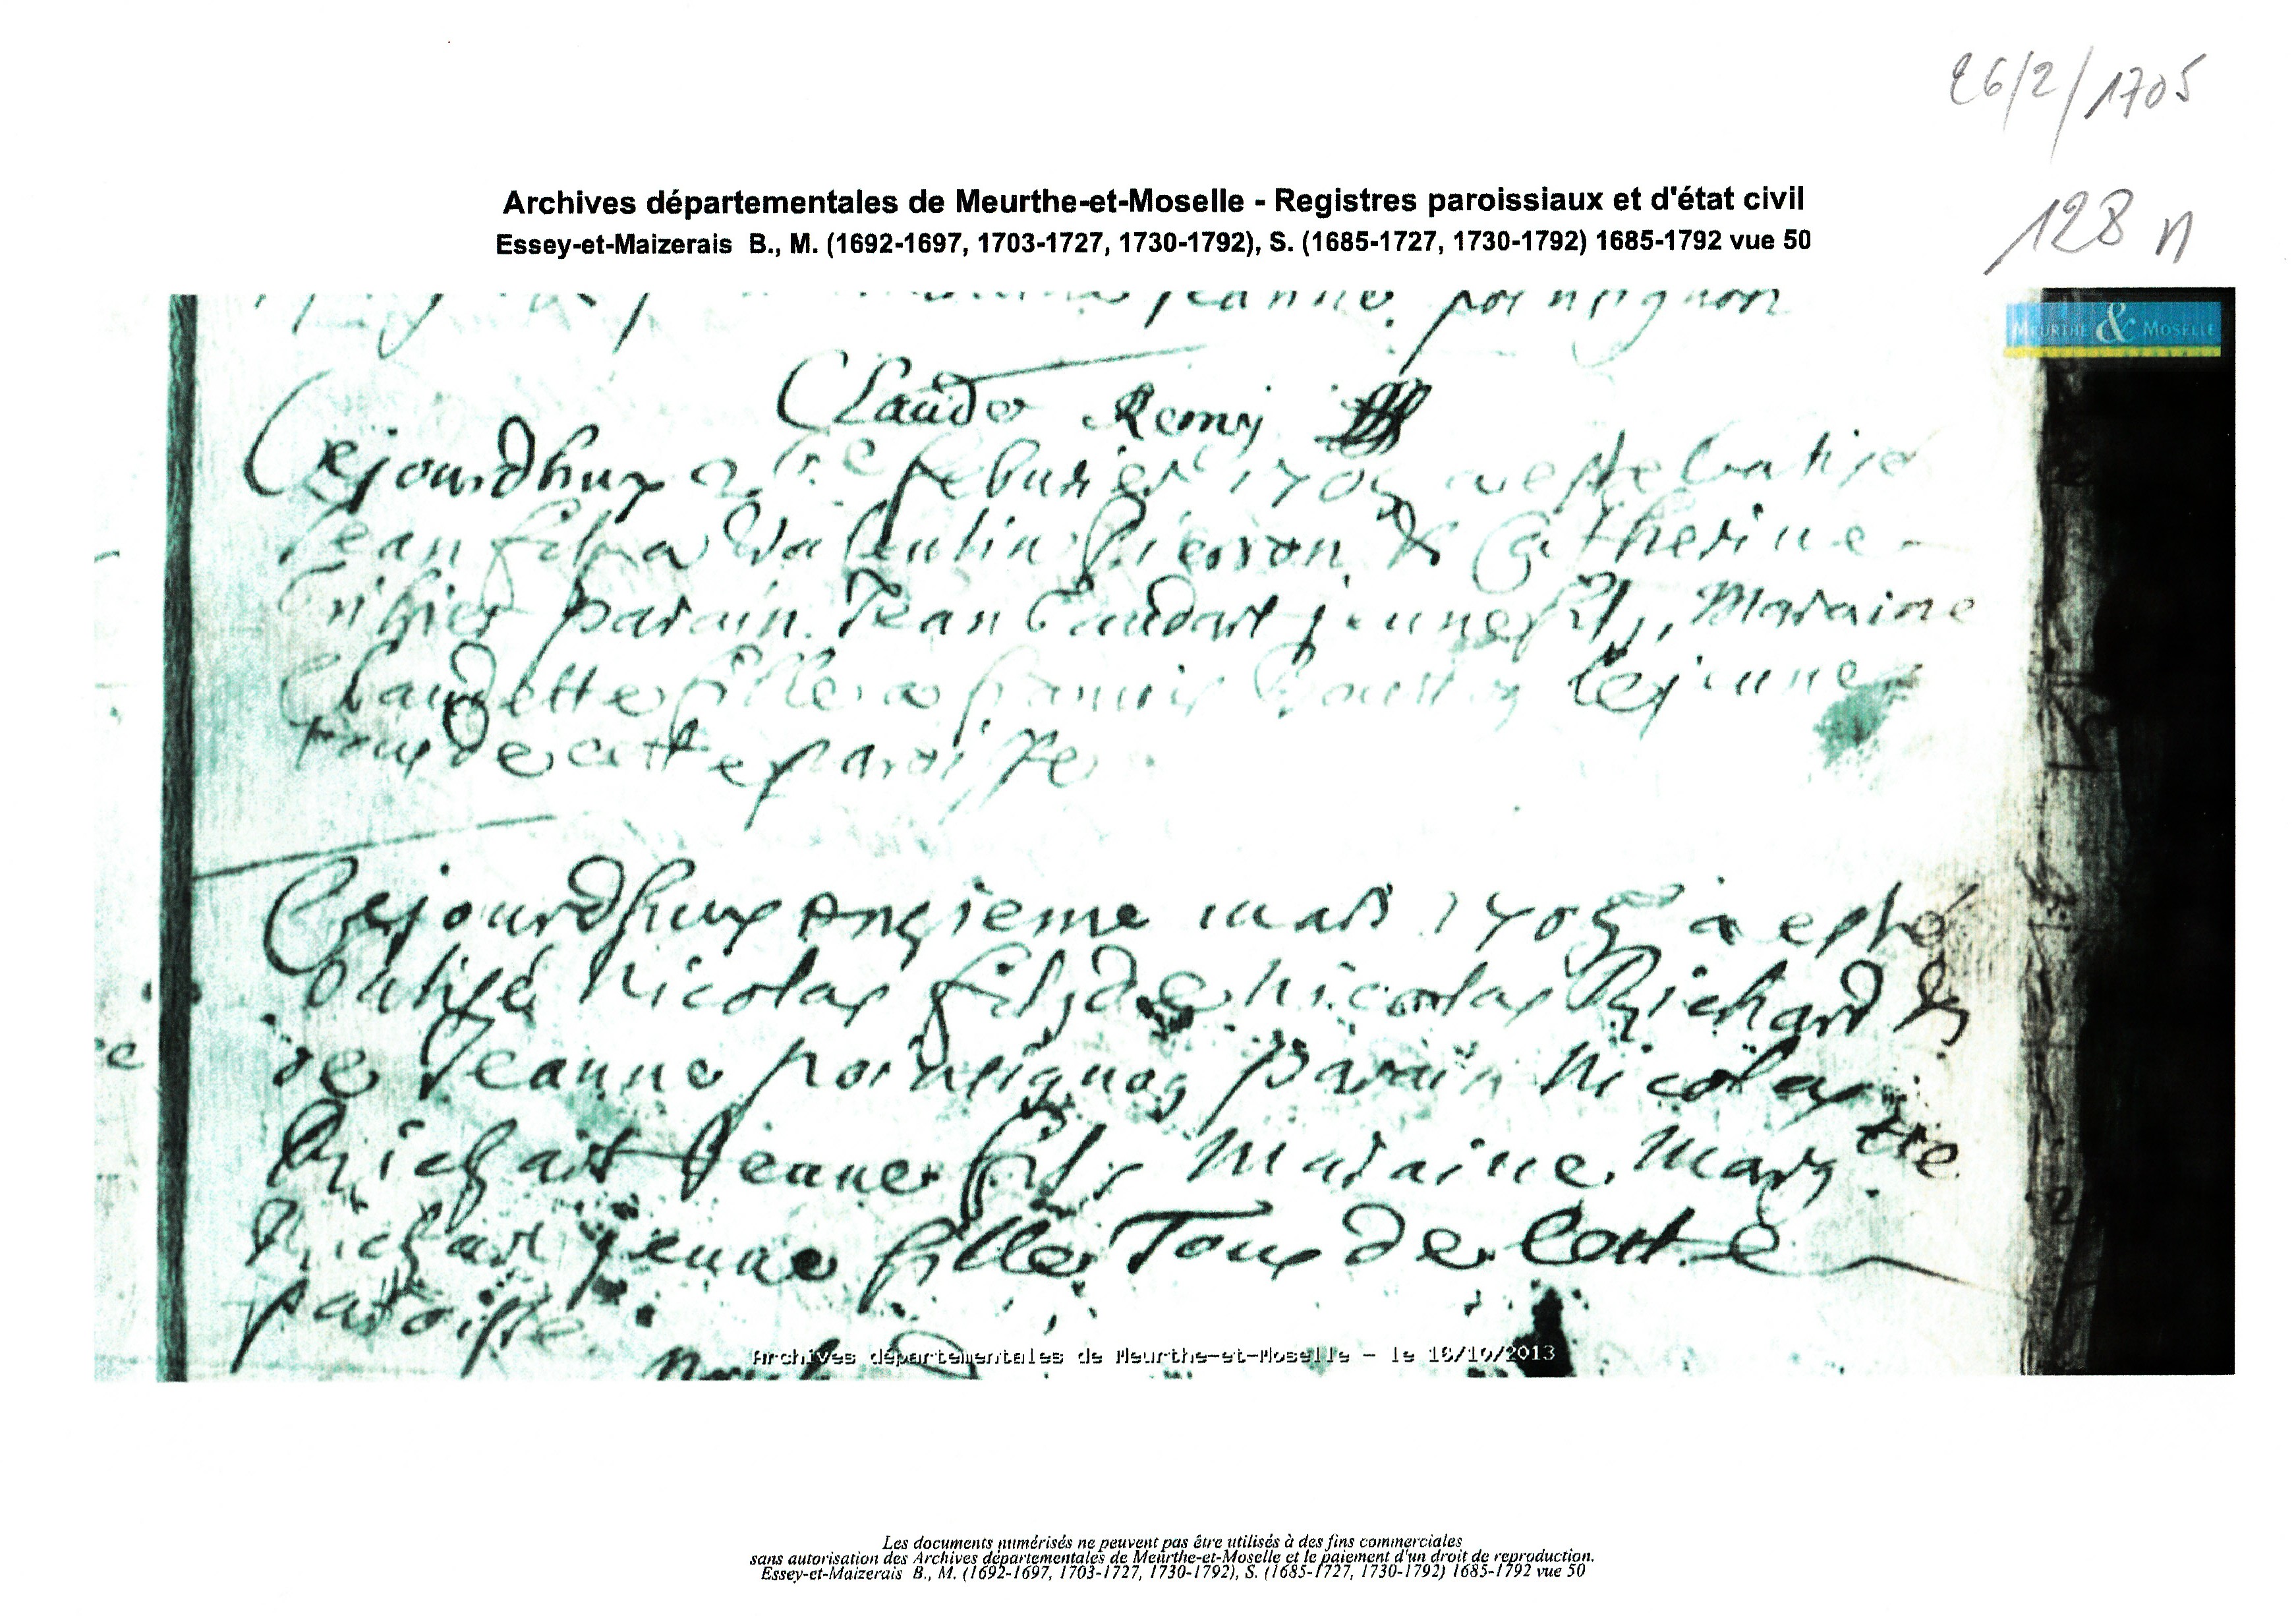 26/2/1705
Archives départementales de Meurthe-et-Moselle - Registres paroissiaux et d'état civil
128 n
Essey-et-Maizerais B., M. (1692-1697, 1703-1727, 1730-1792), S. (1685-1727, 1730-1792) 1685-1792 vue 50
MEURTHE & MOSELLE
jeanne poinsignon
Claude Remy
Cejourdhuy febvrier 1705 a este batisé
Jean fils a Valentin Pierson & Catherine
parain Jean jeune fils, Maraine
Claudette fille a francois le jeune
tous de cette paroisse
Cejourdhuy onzieme mars 1705 a esté
batisé Nicolas fils de Nicolas Richard &
de Jeanne poinsignon parain Nicolas
Richart Jeune fils Maraine Margtte
Richart jeune fille Tous de Cette
paroisse
Archives départementales de Meurthe-et-Moselle - le 16/10/2013
Les documents numérisés ne peuvent pas être utilisés à des fins commerciales
sans autorisation des Archives départementales de Meurthe-et-Moselle et le paiement d'un droit de reproduction.
Essey-et-Maizerais B., M. (1692-1697, 1703-1727, 1730-1792), S. (1685-1727, 1730-1792) 1685-1792 vue 50